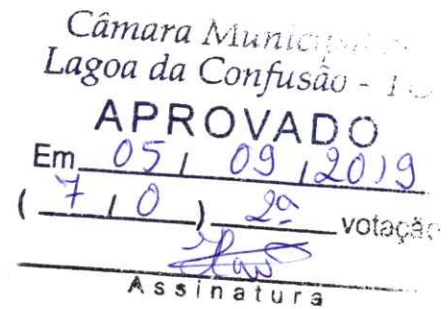 Câmara Municipal
Lagoa da Confusão - TO
APROVADO
Em 05 / 09 / 2019
( 7 / 0 ) 2ª votação
Assinatura